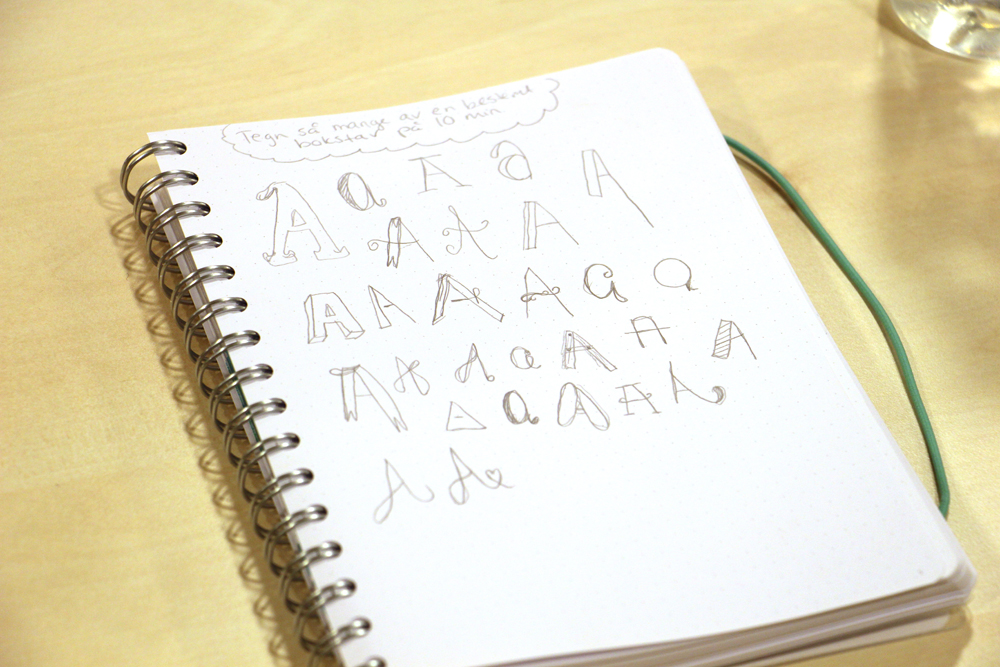 Tegn så mange av en
bokstav på 10 min
A a A a A
A A A
A A A A a a
A A A a A A A
A a A A A
A A